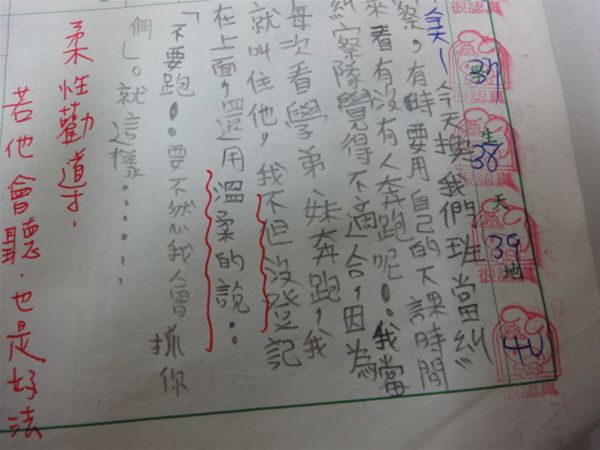 很認真
38
生
天
39
地
很認真
40
很認真
今天換我們班當糾
察，有時要用自己的下課時間
來看有沒有人奔跑呢..我當
糾察隊覺得不適合，因為
每次看學弟妹奔跑，我
就叫住他，我不但沒登記
在上面，還用溫柔的說..
「不要跑..要不然我會抓你
們」。就這樣......
柔性勸導才.
若他會聽.也是好法